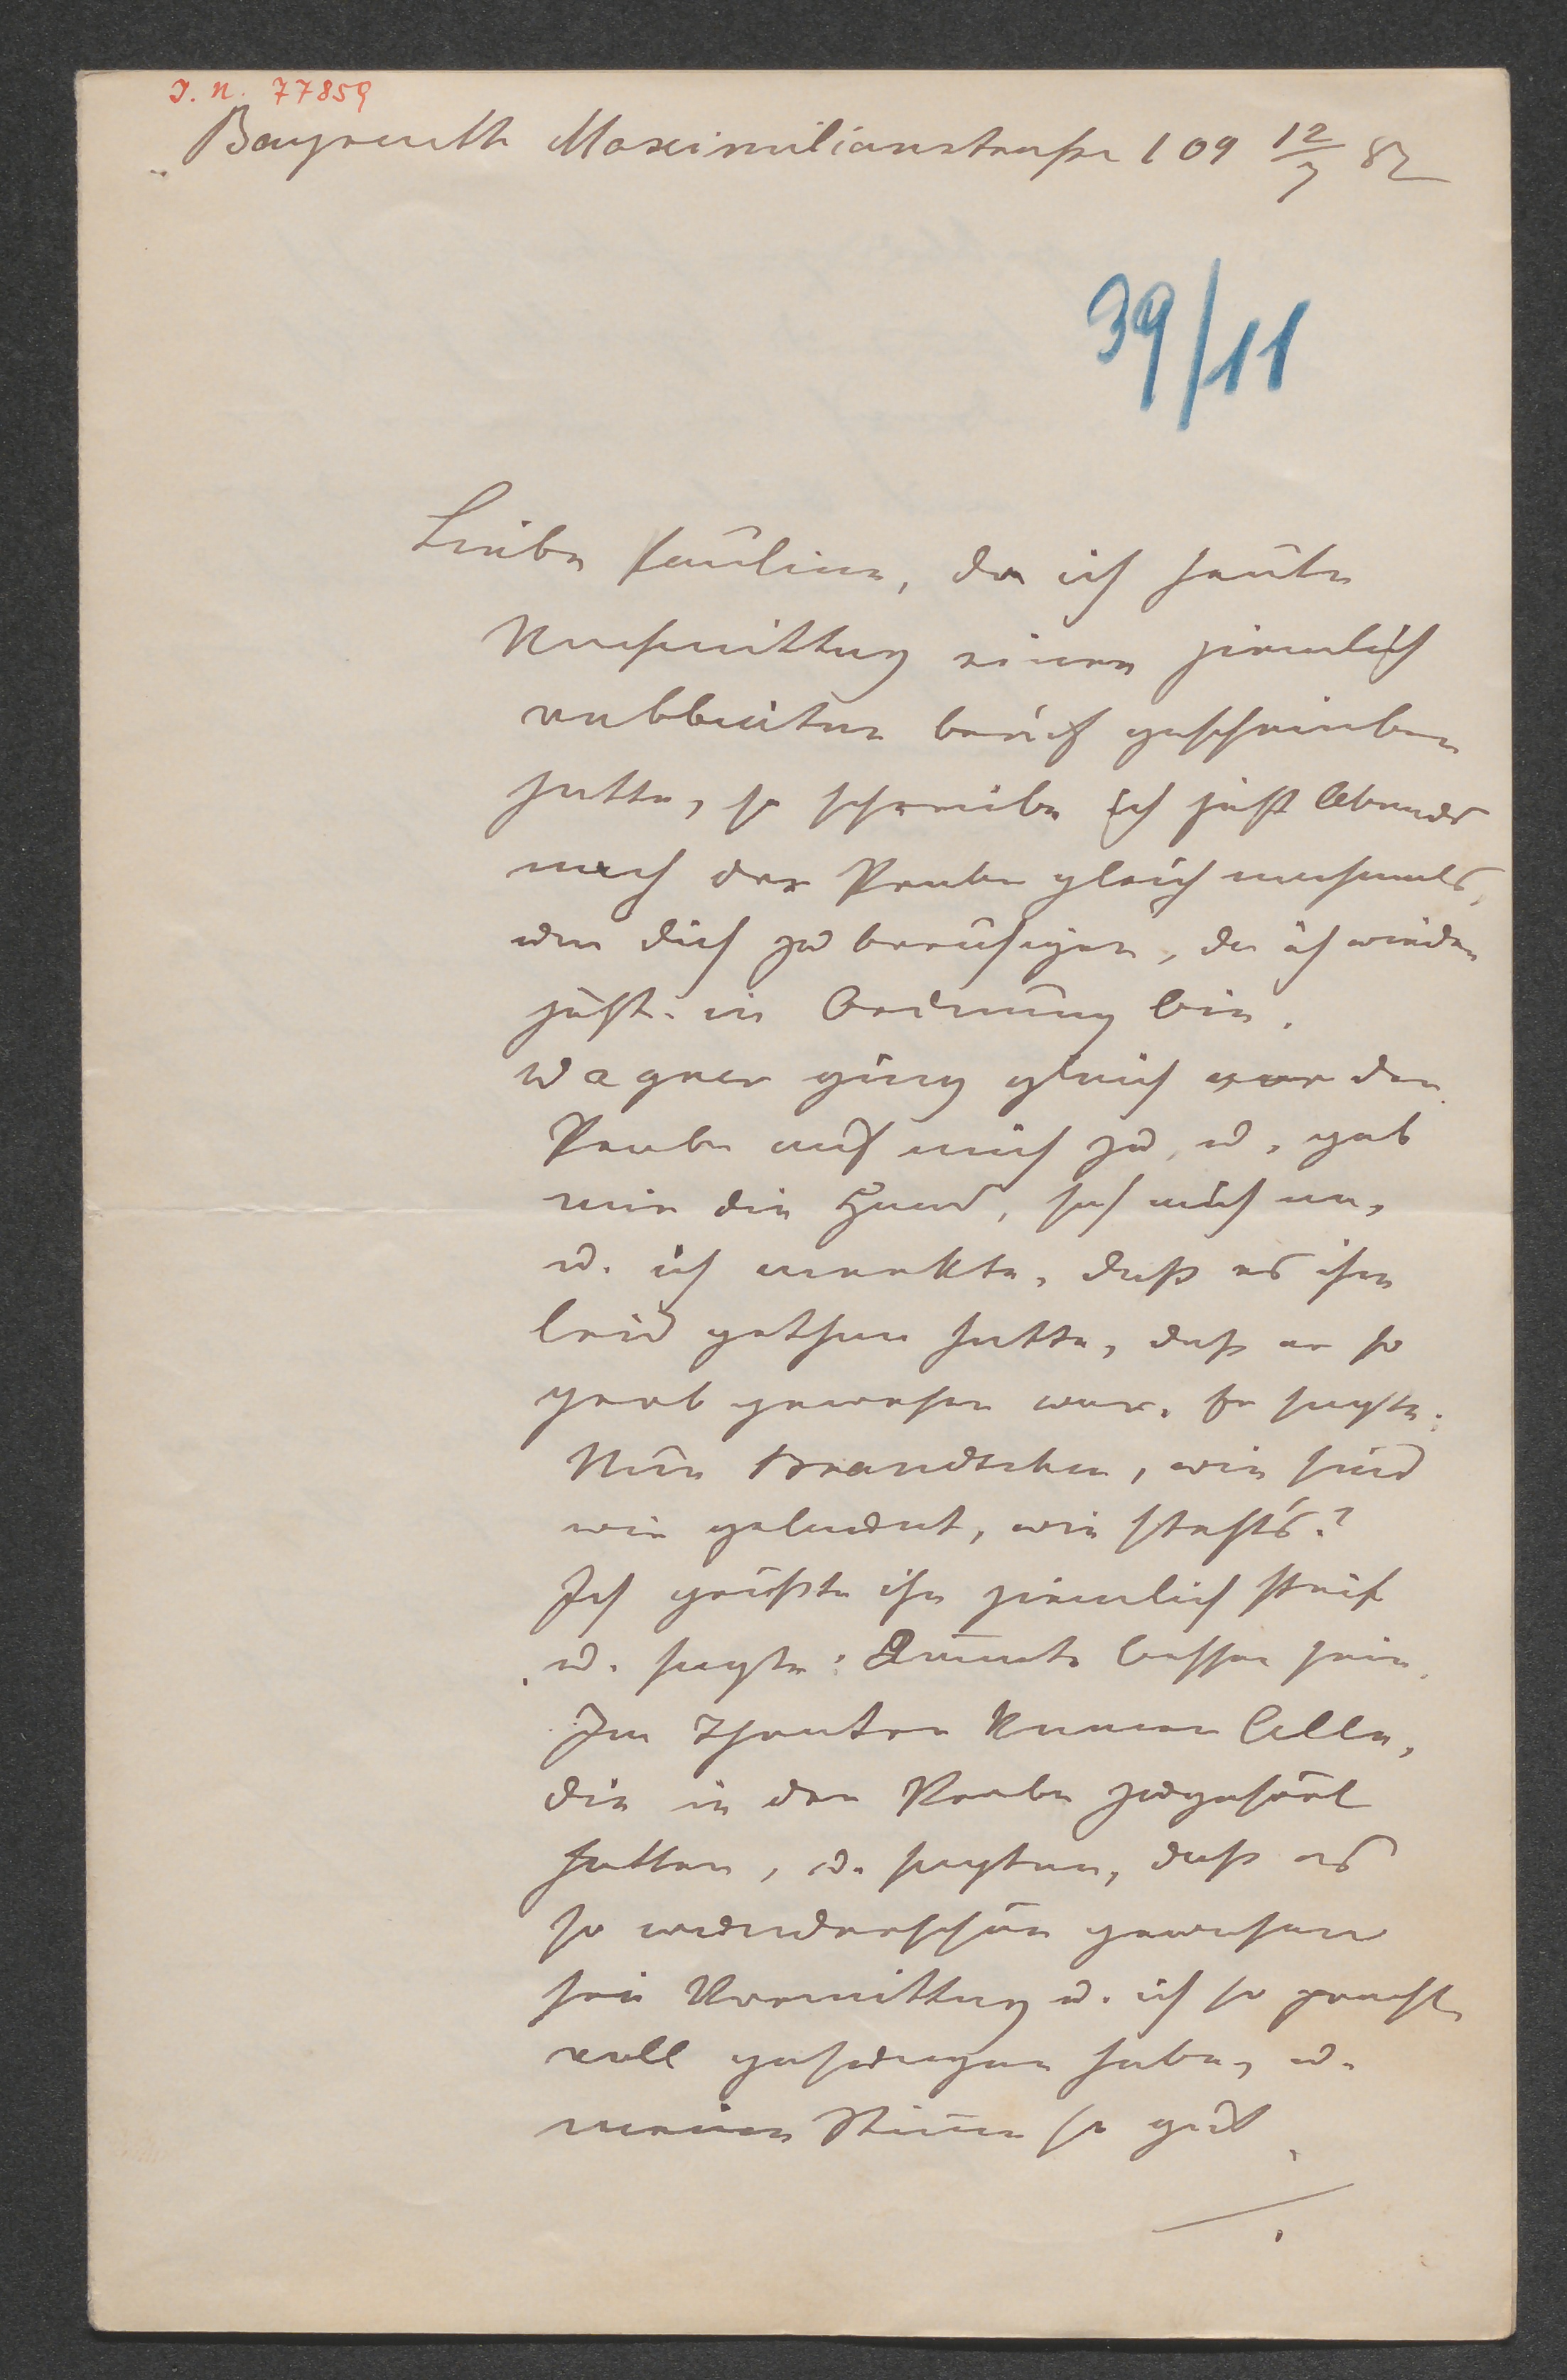 I. N. 77859
Bayreuth Maximilianstraße 109 12/7 82
39/11
Liebe Pauline, da ich heute
Nachmittag einen ziemlich
rabbiaten Brief geschrieben
hatte, so schreibe ich jetzt Abends
nach der Probe gleich nochmals,
um dich zu beruhigen, da ich wieder
jetzt in Ordnung bin.
Wagner ging gleich vor der
Probe auf mich zu, u. gab
mir die Hand, sah mich an,
u. ich merkte, daß es ihm
leid gethan hatte, daß er so
grob gewesen war. Er sagte:
Nun Brandtchen, wie sind
wir gelaunt, wie steht's?
Ich grüßte ihn ziemlich steif
u. sagte: besser sein.
Im Theater kamen Alle,
die in der Probe zugehört
hatten, u. sagten, daß es
so wunderschön gewesen
sei Vormittag u. ich so pracht
voll gesungen habe, u.
meine Stimme so gut